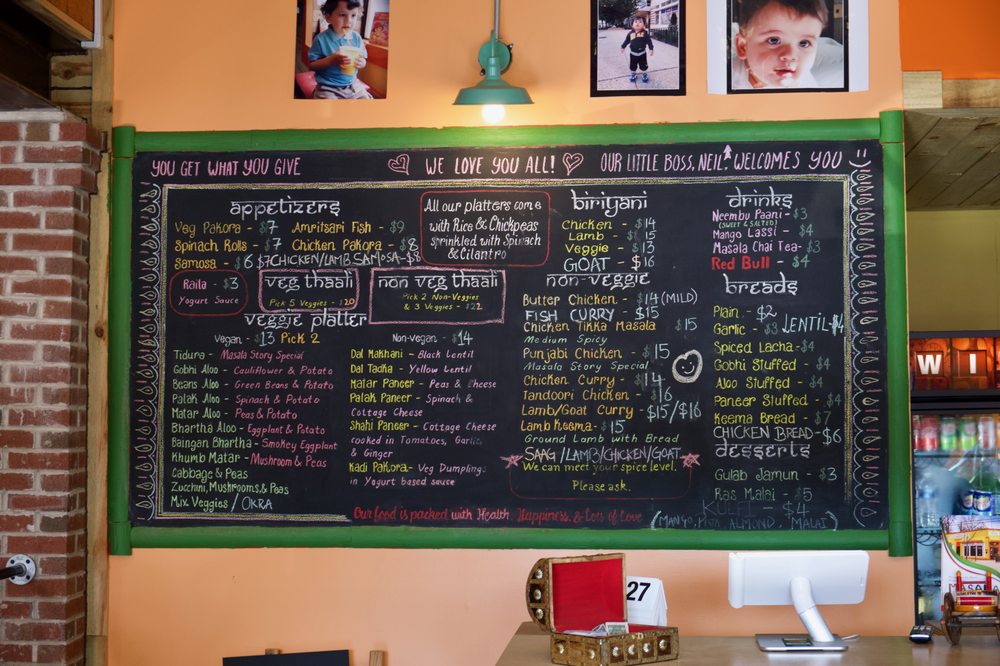 YOU GET WHAT YOU GIVE
WE LOVE YOU ALL!
OUR LITTLE BOSS, NEIL, WELCOMES YOU
appetizers
Veg Pakora - $7 Amritsari Fish - $9
Spinach Rolls - $7 Chicken Pakora - $8
Samosa - $6 $7CHICKEN/LAMB SAMOSA-$8
Raita - $3
Yogurt Sauce
veg thaali
Pick 5 Veggies - $20
non veg thaali
Pick 2 Non-Veggies
& 3 Veggies - $22
All our platters come
with Rice & Chickpeas
sprinkled with Spinach
& Cilantro
veggie platter
Vegan - $13 Pick 2 Non-vegan - $14
Tidura - Masala Story Special
Gobhi Aloo - Cauliflower & Potato
Beans Aloo - Green Beans & Potato
Palak Aloo - Spinach & Potato
Matar Aloo - Peas & Potato
Bhartha Aloo - Eggplant & Potato
Baingan Bhartha - Smokey Eggplant
Khumb Matar - Mushroom & Peas
Cabbage & Peas
Zucchini, Mushrooms, & Peas
Mix Veggies / OKRA
Dal Makhani - Black Lentil
Dal Tadka - Yellow Lentil
Matar Paneer - Peas & Cheese
Palak Paneer - Spinach &
Cottage Cheese
Shahi Paneer - Cottage Cheese
cooked in Tomatoes, Garlic,
& Ginger
Kadi Pakora - Veg Dumplings
in Yogurt based sauce
biriyani
Chicken - $14
Lamb - $15
Veggie - $13
GOAT - $16
non-veggie
Butter Chicken - $14 (MILD)
FISH CURRY - $15
Chicken Tikka Masala $15
Medium Spicy
Punjabi Chicken - $15
Masala Story Special
Chicken Curry - $14
Tandoori Chicken - $16
Lamb/Goat Curry - $15/$16
Lamb Keema - $15
Ground Lamb with Bread
SAAG/LAMB/CHICKEN/GOAT
We can meet your spice level.
Please ask.
drinks
Neembu Paani - $3
(SWEET & SALTED)
Mango Lassi - $4
Masala Chai Tea - $3
Red Bull - $4
breads
Plain - $2
Garlic - $3 LENTIL-$4
Spiced Lacha - $4
Gobhi Stuffed - $4
Aloo Stuffed - $4
Paneer Stuffed - $4
Keema Bread - $7
CHICKEN BREAD - $6
desserts
Gulab Jamun - $3
Ras Malai - $5
KULFI - $4
(MANGO, PISTA, ALMOND, MALAI)
Our food is packed with Health, Happiness, & Lots of Love
27
WI